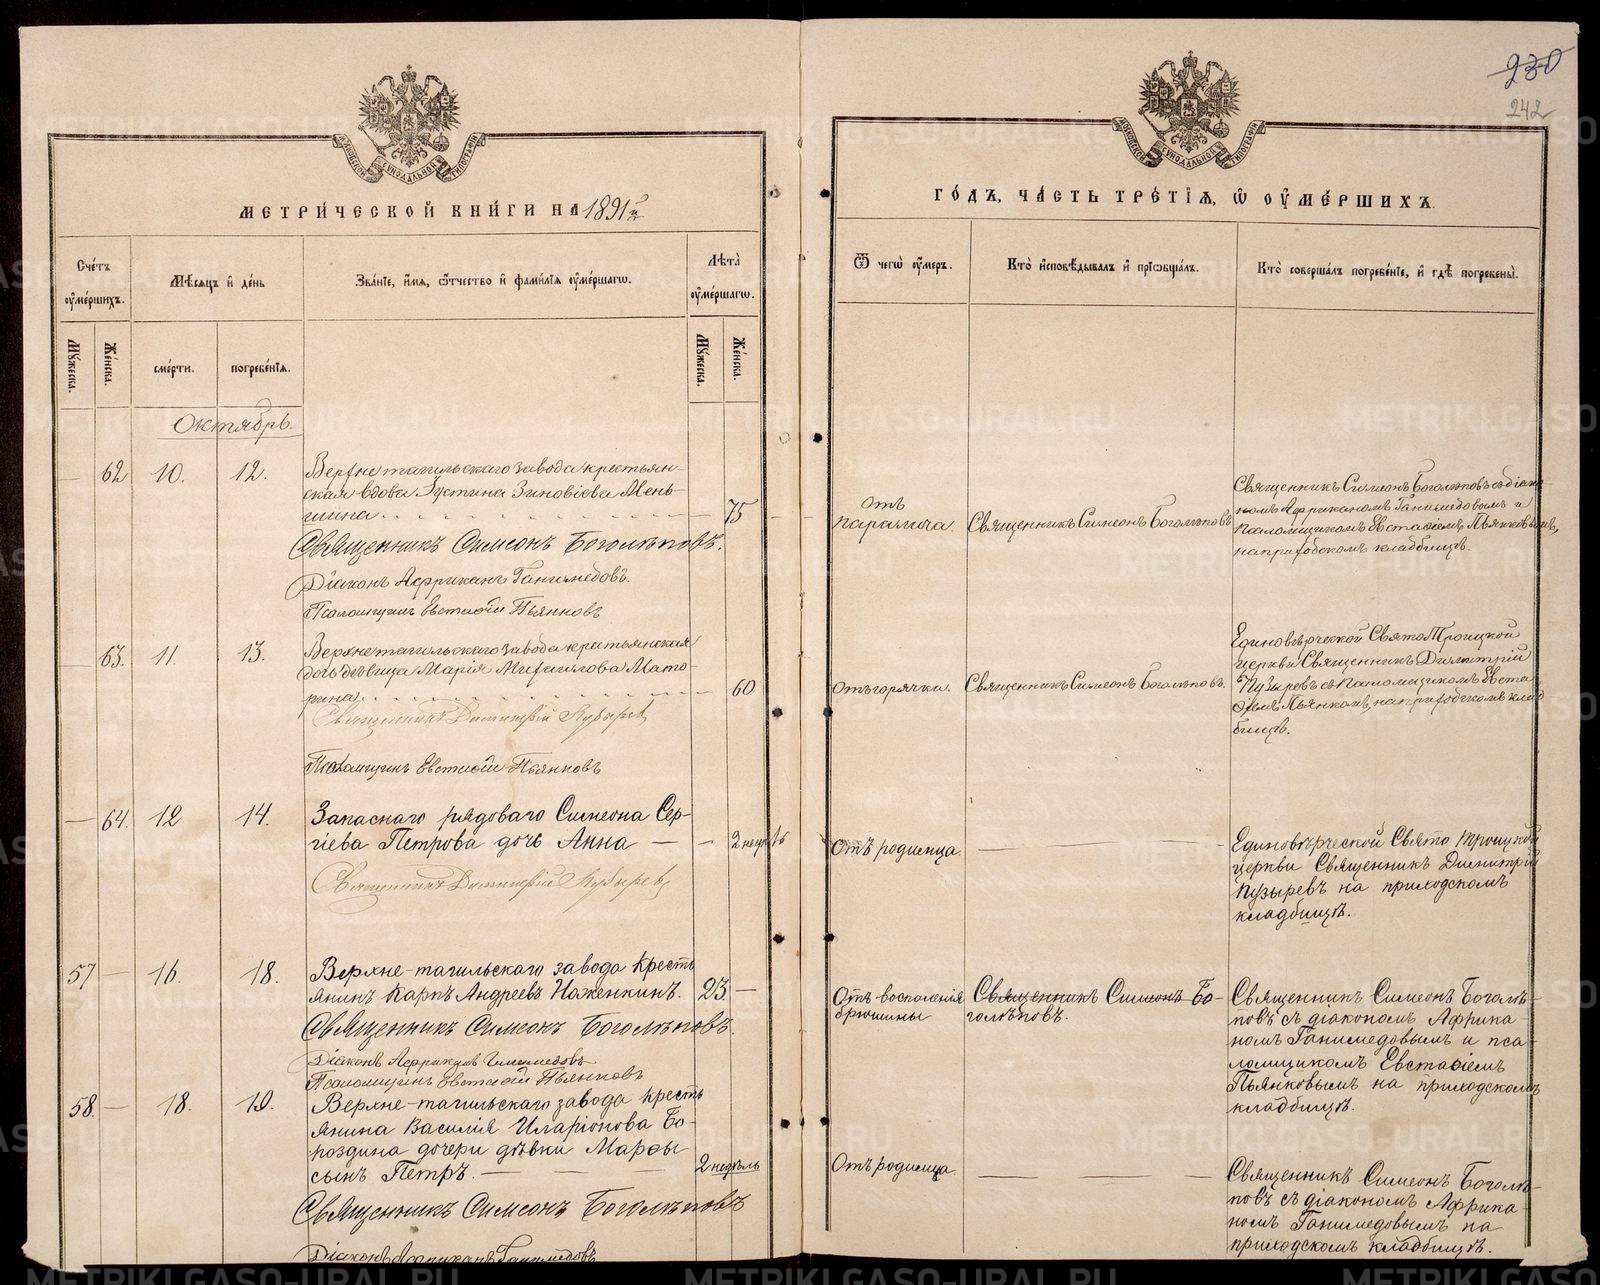 230
242
МОСКОВСКОЙ СѴНОДАЛЬНОЙ ТИПОГРАФІИ
МОСКОВСКОЙ СѴНОДАЛЬНОЙ ТИПОГРАФІИ
МЕТРИ́ЧЕСКОЙ КНИ́ГИ НА 1891й
ГО́ДЪ, ЧА́СТЬ ТРЕ́ТІѦ, Ѽ ОУ҆МЕ́РШИХЪ
Сче́тъ оу҆ме́ршихъ.
Мѣ́сѧцъ и҆ де́нь
Зва́нїе, и҆́мѧ, ѻ҆́тчество и҆ фами́лїѧ оу҆ме́ршагѡ.
Лѣта̀ оу҆ме́ршагѡ.
Му́жеска.
Же́нска.
сме́рти.
погребе́нїѧ.
Му́жеска.
Же́нска.
Ѿ чегѡ̀ оу҆́меръ.
Кто̀ и҆сповѣ́дывалъ и҆ прїѡбща́лъ.
Кто̀ соверша́лъ погребе́нїе, и҆ гдѣ̀ погребены̀.
Октябрь.
— 62 10. 12.
Верхнетагильскаго завода крестьян-
ская вдова Іустина Зиновіева Мень-
шина 75
Священникъ Симеонъ Боголѣповъ.
Діаконъ Африканъ Ганимедовъ.
Псаломщикъ Евстаѳій Пьянковъ
Отъ
паралича.
Священникъ Симеонъ Боголѣповъ
Священникъ Симеонъ Боголѣповъ съ діако
номъ Африканомъ Ганимедовымъ и
псаломщикомъ Евстаѳіемъ Пьянковымъ,
на приходскомъ кладбищѣ.
— 63. 11. 13.
Верхнетагильскаго завода крестьянская
дочь дѣвица Марія Михаилова Мато-
рина 60
Священникъ Димитрій Пузыревъ
Псаломщикъ Евстаѳій Пьянковъ
Отъ горячки.
Священникъ Симеонъ Боголѣповъ.
Единовѣрческой Свято Троицкой
церкви Священникъ Димитрій
Пузыревъ съ псаломщикомъ Евста
ѳіемъ Пьянковымъ, на приходскомъ клад
бищѣ.
— 64. 12 14.
Запаснаго рядоваго Симеона Сер-
гіева Петрова дочь Анна — — 2 нед
Священникъ Димитрій Пузыревъ
Отъ родимца. — —
Единовѣрческой Свято Троицкой
церкви Священникъ Димитрій
Пузыревъ на приходскомъ
кладбищѣ.
57 — 16. 18.
Верхне-тагильскаго завода кресть
янинъ Карпъ Андреевъ Наженкинъ. 23. —
Священникъ Симеонъ Боголѣповъ.
Діаконъ Африканъ Ганимедовъ
Псаломщикъ Евстаѳій Пьянковъ
Отъ воспаленія
брюшины
Священникъ Симеонъ Бо-
голѣповъ.
Священникъ Симеонъ Боголѣ-
повъ съ діакономъ Африка-
номъ Ганимедовымъ и пса-
ломщикомъ Евстаѳіемъ
Пьянковымъ на приходскомъ
кладбищѣ.
58. — 18. 19.
Верхне-тагильскаго завода кресть
янина Василія Иларіонова Бо-
роздина дочери дѣвки Марѳы
сынъ Петръ. — — — 2 недѣль
Священникъ Симеонъ Боголѣповъ
Діаконъ Африканъ Ганимедовъ
Отъ родимца. — — —
Священникъ Симеонъ Боголѣ-
повъ съ діакономъ Африка-
номъ Ганимедовымъ на
приходскомъ кладбищѣ.
METRIKI.GASO-URAL.RU